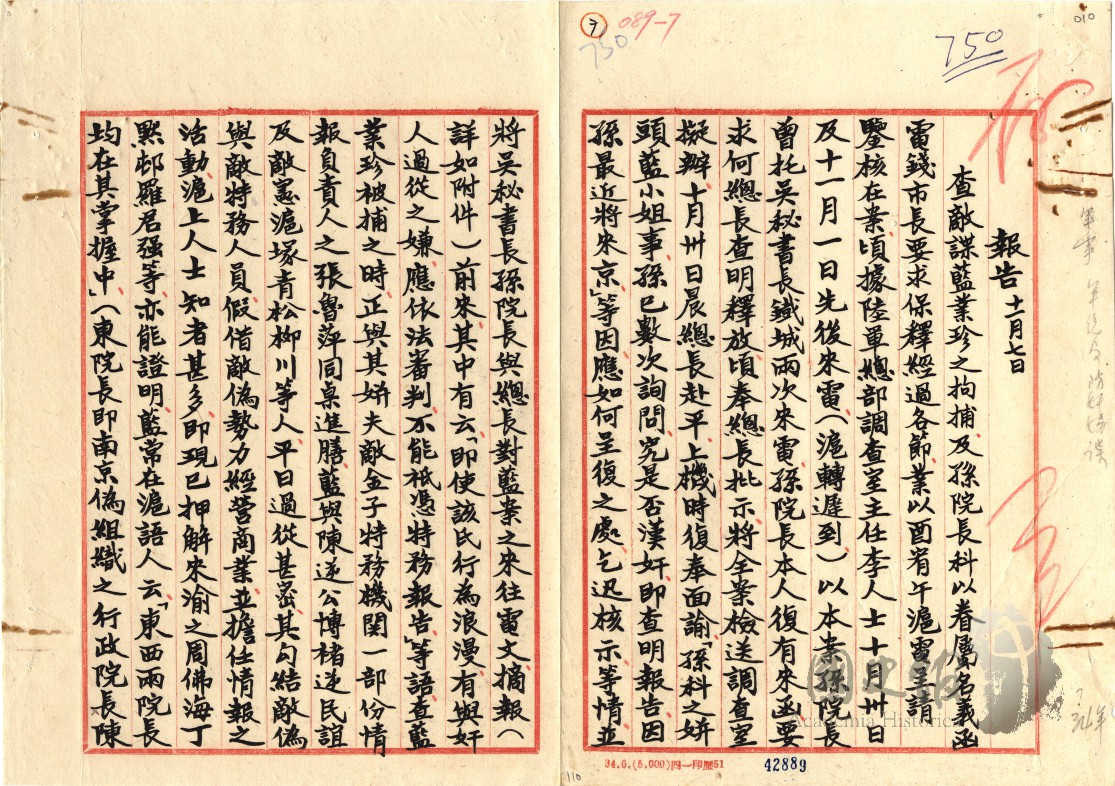 089-7
750
750
010
報告 十一月七日
查敵諜藍業珍之拘捕及孫院長科以眷屬名義函
電錢市長要求保釋經過各節業以酉宥午滬電請
鑒核在案頃據陸軍總部調查室主任李人士十月卅日
及十一月一日先後來電(滬轉遲到)以本案孫院長
曾托吳秘書長鐵城兩次來電孫院長本人復有來函要
求何總長查明釋放頃奉總長批示將全案檢送調查室
擬辦十月卅日晨總長赴平上機時復奉面諭「孫科之姘
頭藍小姐事孫已數次詢問究是否漢奸即查明報告因
孫最近將來京」等因應如何呈復之處乞迅核示等情並
將吳秘書長孫院長與總長對藍案之來往電文摘報(
詳如附件)前來其中有云「即使該氏行為浪漫有與奸
人過從之嫌應依法審判不能祗憑特務報告」等語查藍
業珍被捕之時正與其姘夫敵金子特務機関一部份情
報負責人之張魯萍同桌進膳藍與陳逆公博褚逆民誼
及敵憲滬塚青松柳川等人平日過從甚密其勾結敵偽
與敵特務人員假借敵偽勢力經營商業並擔任情報之
活動滬上人士知者甚多即現已押解來渝之周佛海丁
默邨羅君强等亦能證明藍常在滬語人云「東西兩院長
均在其掌握中」(東院長即南京偽組織之行政院長陳
國史館
Academia Historica
34.6.(5.000)四一印壓51
42889
110